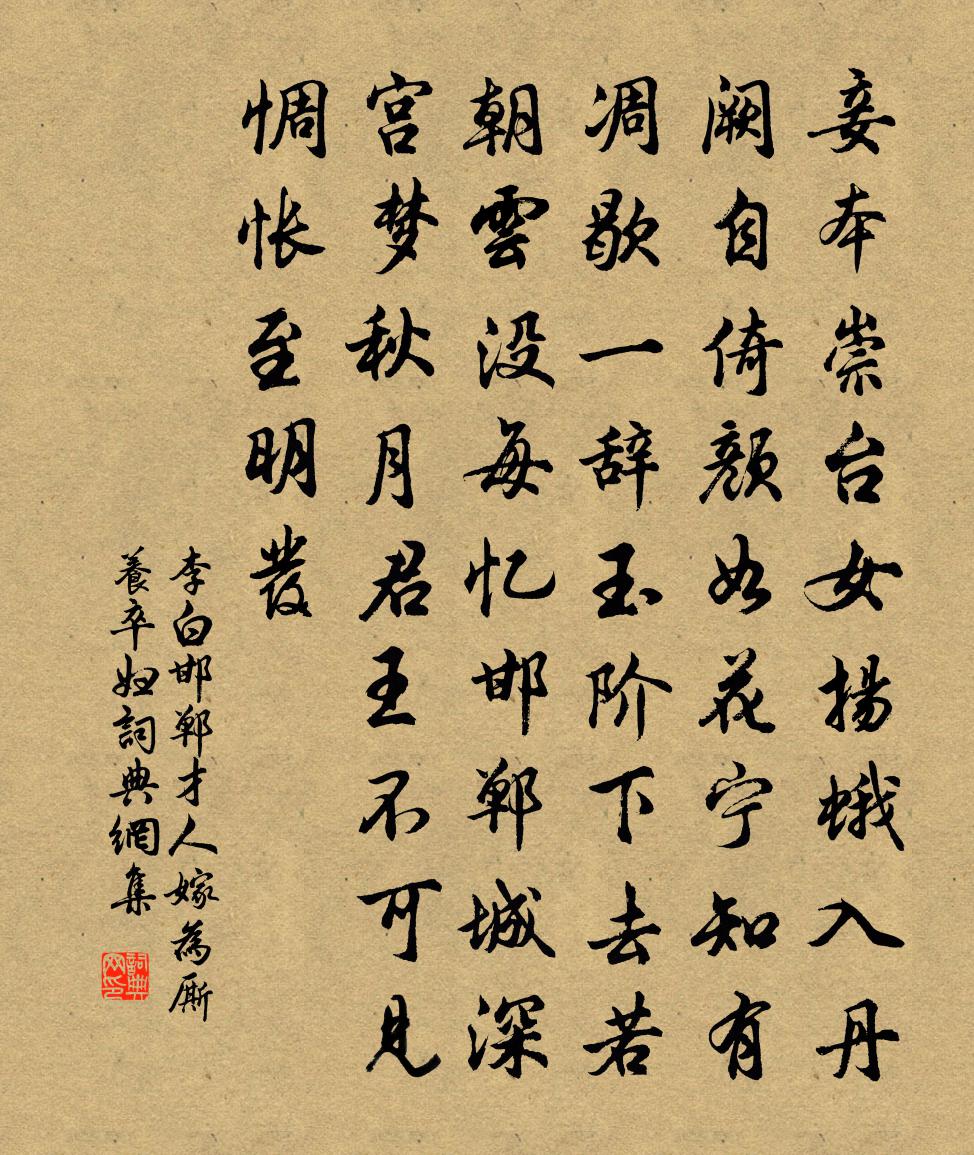 妾本崇台女揚蛾入丹
阙自倚颜如花宁知有
凋歇一辞玉阶下去若
朝雲没每忆邯郸城深
宫梦秋月君王不可見
惆怅至明發
李白邯郸才人嫁為厮
養卒妇詞典網集
詞典
网印